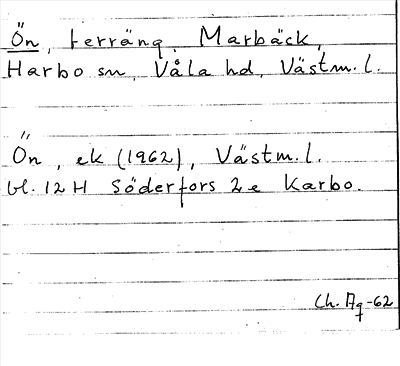 Ön, terräng, Marbäck,
Harbo sn, Våla hd, Västm. l.
Ön, ek (1962), Västm. l.
bl. 12 H Söderfors 2e Karbo.
Ch. Ag -62